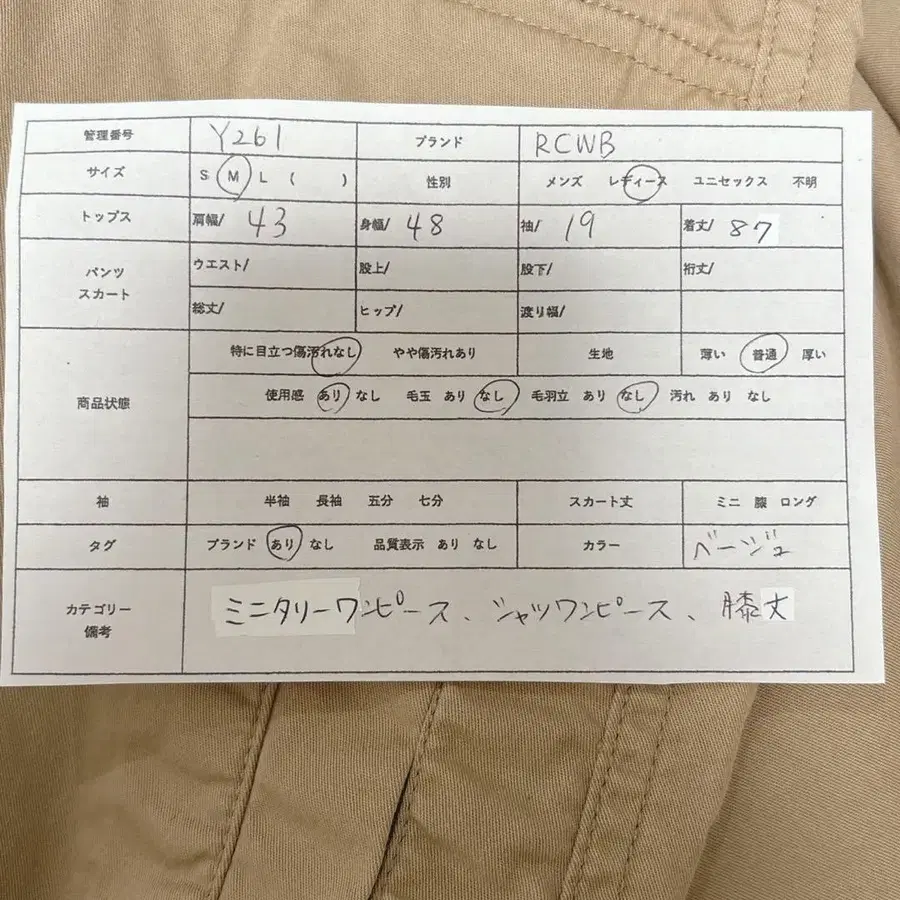 管理番号 Y261 ブランド RCWB
サイズ S M L ( ) 性別 メンズ レディース ユニセックス 不明
トップス 肩幅/ 43 身幅/ 48 袖/ 19 着丈/ 87
パンツ スカート ウエスト/ 股上/ 股下/ 裄丈/
総丈/ ヒップ/ 渡り幅/
商品状態 特に目立つ傷汚れなし やや傷汚れあり 生地 薄い 普通 厚い
使用感 あり なし 毛玉 あり なし 毛羽立 あり なし 汚れ あり なし
袖 半袖 長袖 五分 七分 スカート丈 ミニ 膝 ロング
タグ ブランド あり なし 品質表示 あり なし カラー ベージュ
カテゴリー 備考 ミニタリーワンピース、シャツワンピース、膝丈